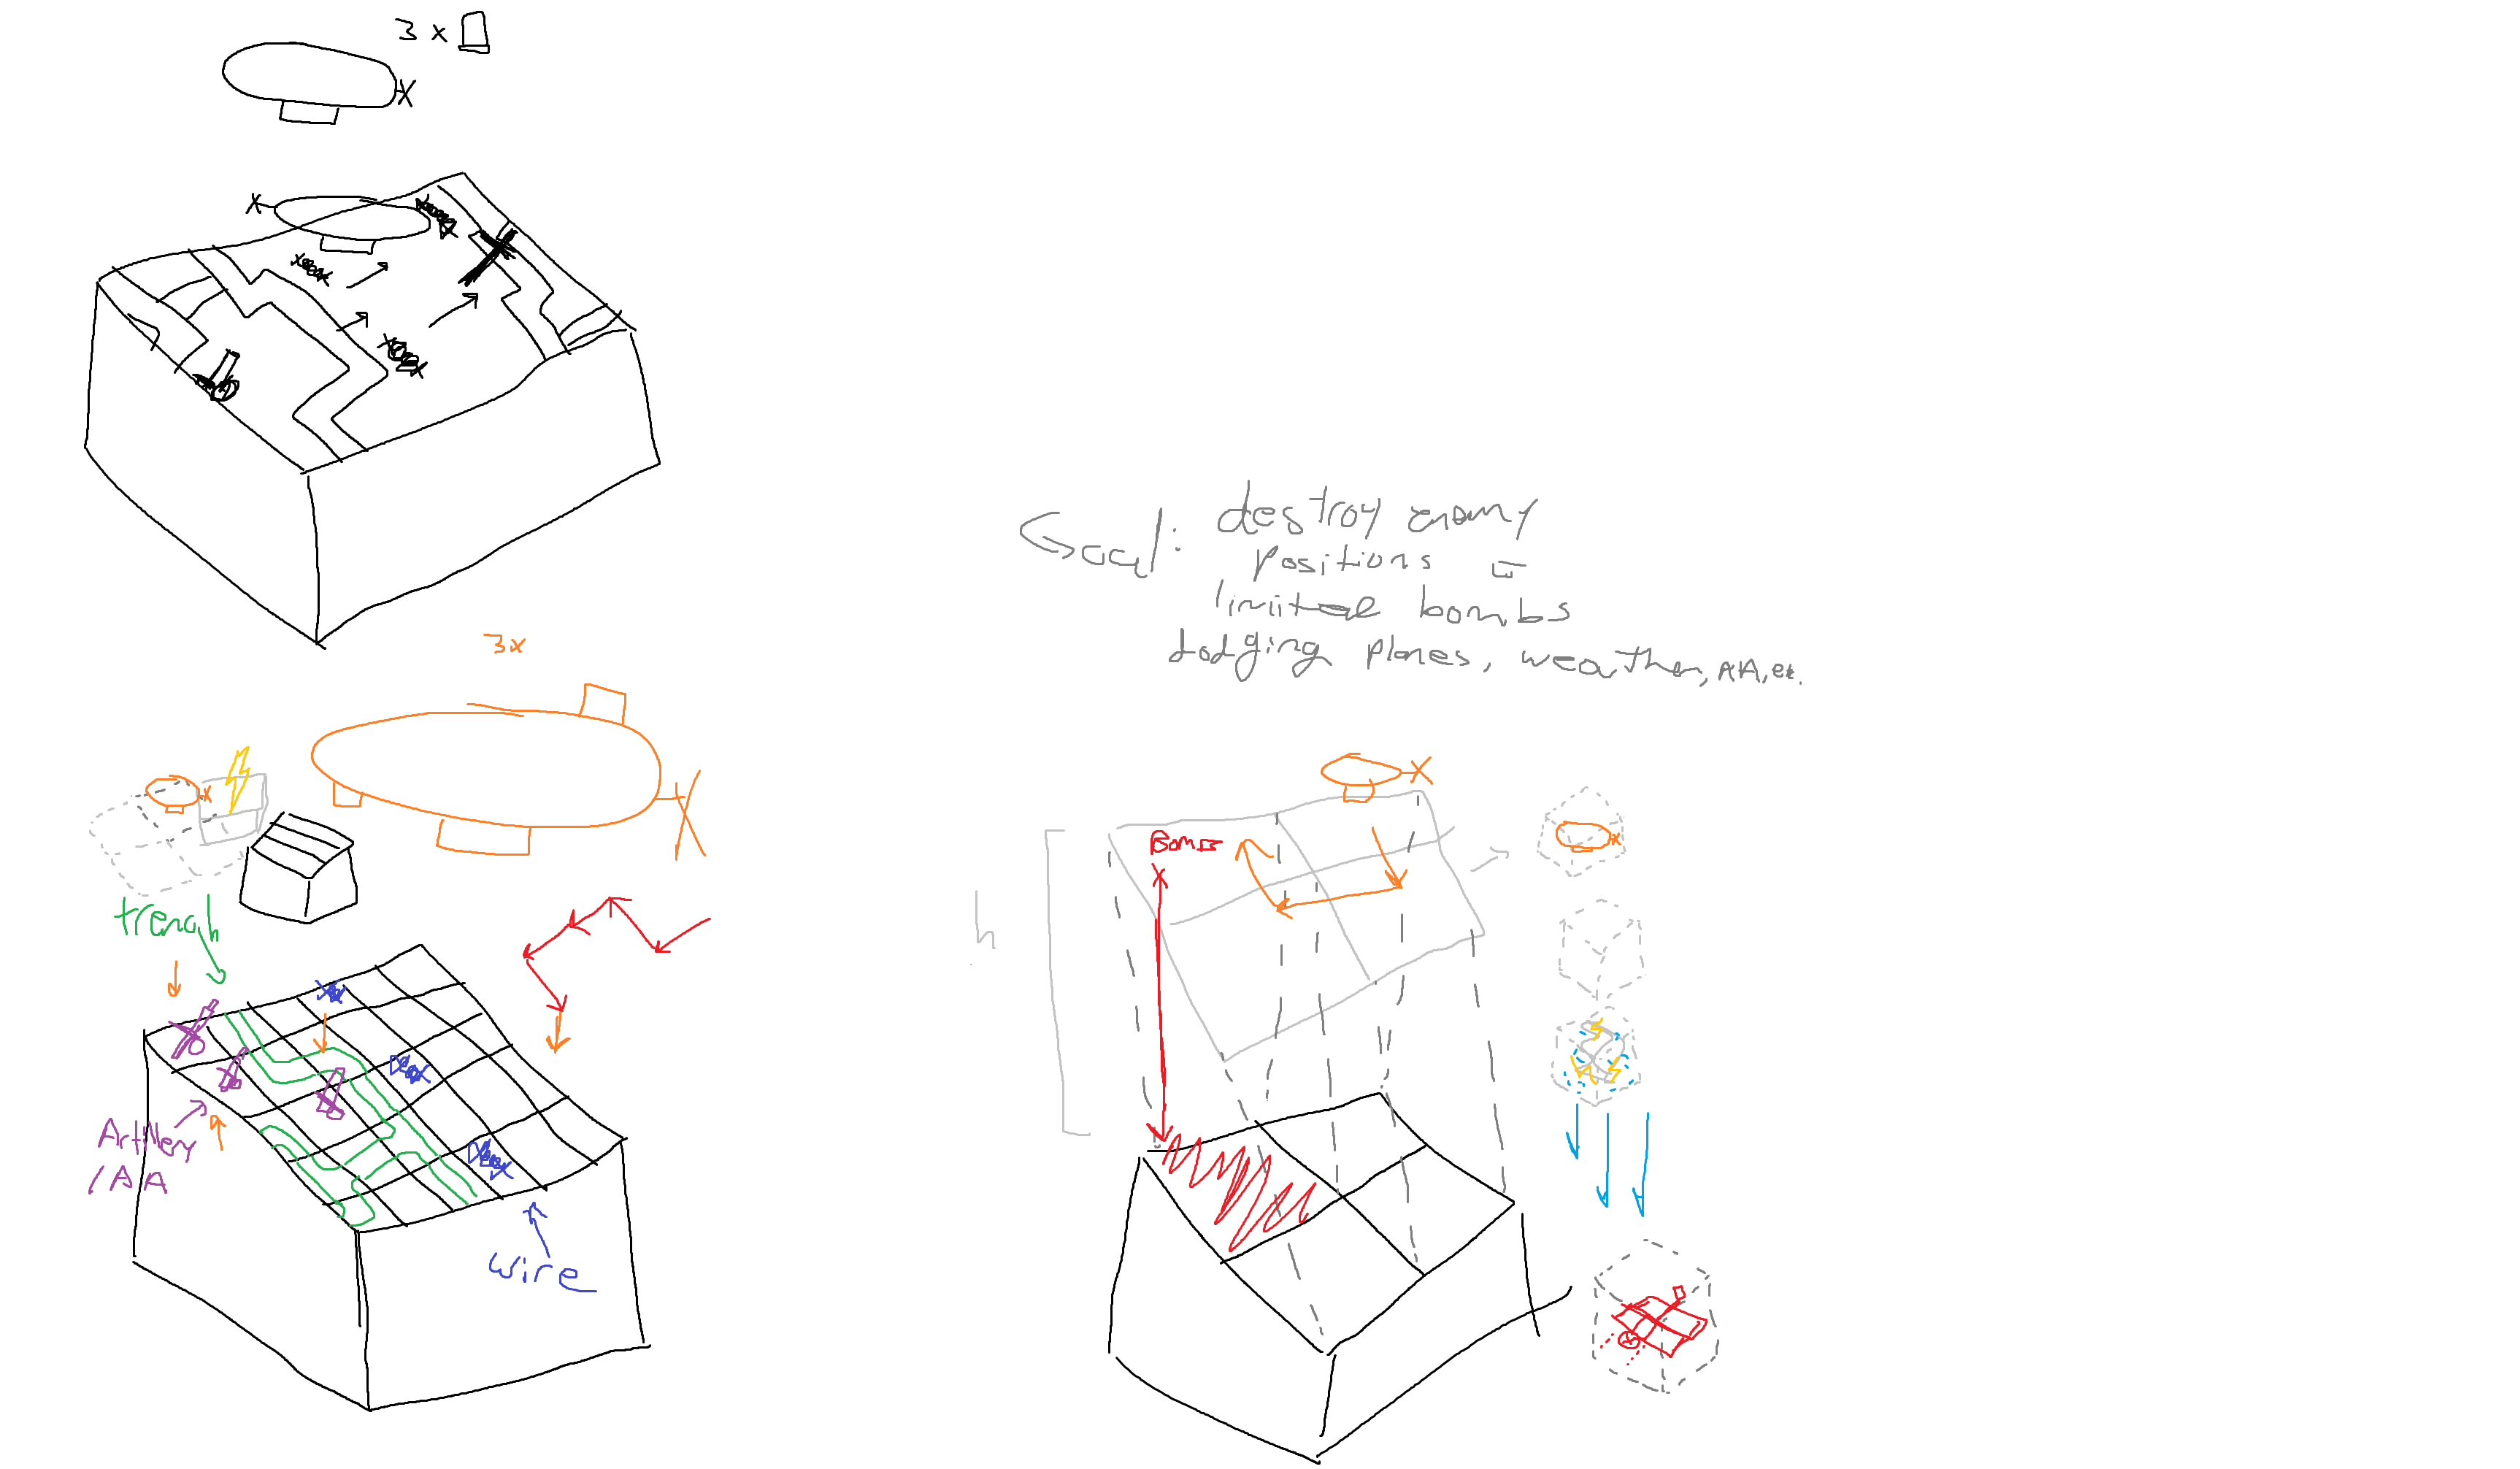 3 x
3x
trench
Artillery
/AA
wire
Goal: destroy enemy
positions w
limited bombs
dodging planes, weather, AA, etc.
Bomb
h